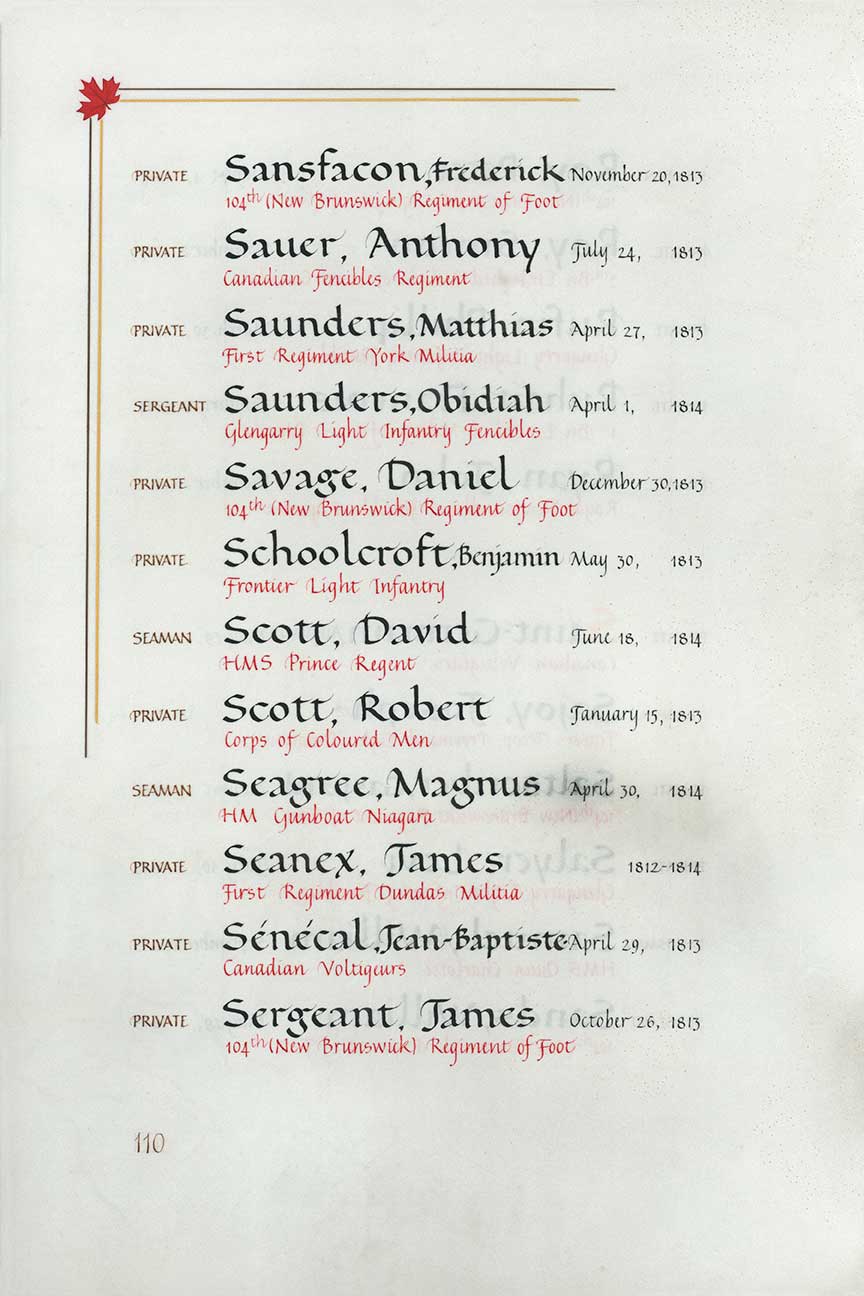 PRIVATE Sansfacon, Frederick November 20, 1813
104th (New Brunswick) Regiment of Foot
PRIVATE Sauer, Anthony July 24, 1813
Canadian Fencibles Regiment
PRIVATE Saunders, Matthias April 27, 1813
First Regiment York Militia
SERGEANT Saunders, Obidiah April 1, 1814
Glengarry Light Infantry Fencibles
PRIVATE Savage, Daniel December 30, 1813
104th (New Brunswick) Regiment of Foot
PRIVATE Schoolcroft, Benjamin May 30, 1813
Frontier Light Infantry
SEAMAN Scott, David June 18, 1814
HMS Prince Regent
PRIVATE Scott, Robert January 15, 1813
Corps of Coloured Men
SEAMAN Seagree, Magnus April 30, 1814
HM Gunboat Niagara
PRIVATE Seanex, James 1812-1814
First Regiment Dundas Militia
PRIVATE Sénécal, Jean-Baptiste April 29, 1813
Canadian Voltigeurs
PRIVATE Sergeant, James October 26, 1813
104th (New Brunswick) Regiment of Foot
110